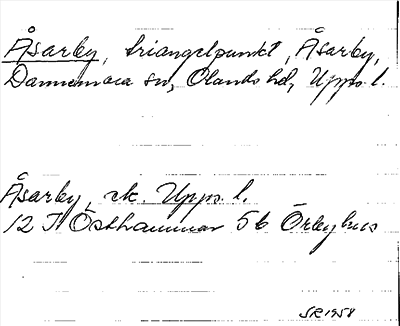 Åsarby, triangelpunkt, Åsarby,
Dannemora sn, Olands hd, Upps. l.
Åsarby, ek. Upps. l.
12 I Östhammar 5b Örbyhus
SR1958